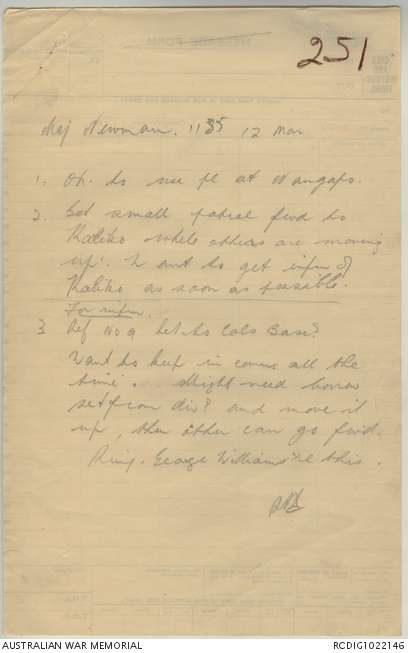 251
Maj Newman. 1135 12 Mar
1. Ok. to use pl at Wangaps.
2. Get small patrol fwd to
Kaliko while others are moving
up. Want to get infm of
Kaliko as soon as possible.
For infm.
3 Ref No 9 Set to Cols Base?
Want to keep in comms all the
time. Might need borrow
set from div? and move it
up, then other can go fwd.
Ring George Williams re this.
AUSTRALIAN WAR MEMORIAL
RCDIG1022146